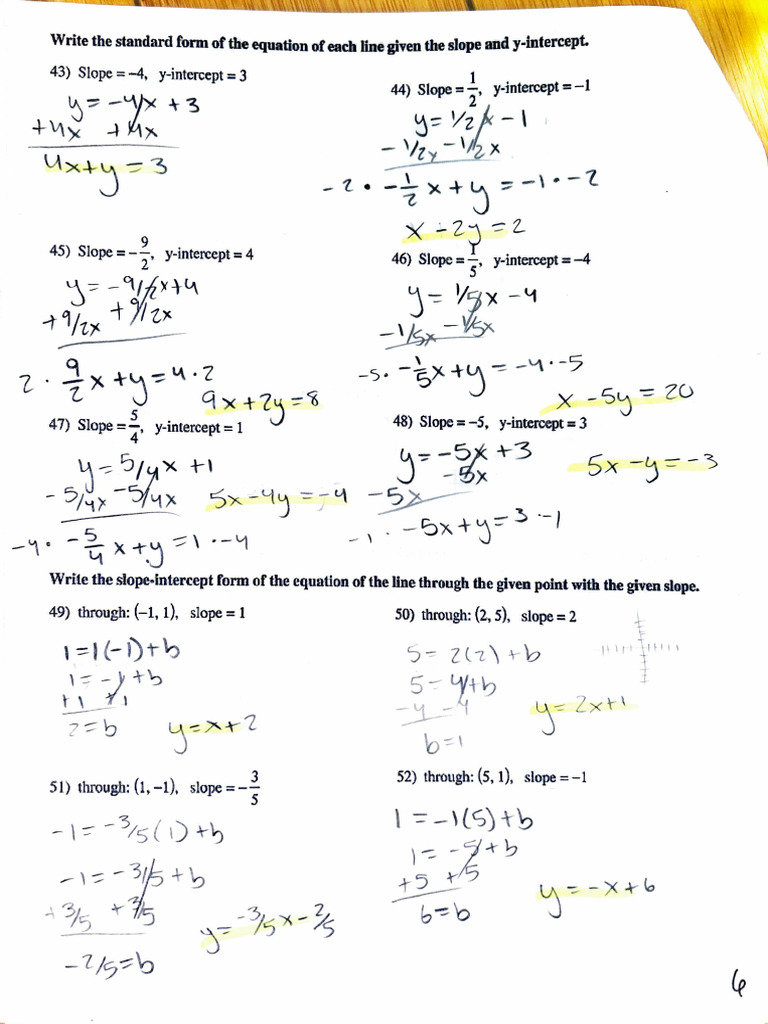 Write the standard form of the equation of each line given the slope and y-intercept.
43) Slope = –4, y-intercept = 3
y = -4x + 3
+4x +4x
4x+y = 3
44) Slope = 1/2, y-intercept = –1
y = 1/2x - 1
- 1/2x - 1/2x
-2 • -1/2x + y = -1 • -2
x - 2y = 2
45) Slope = –9/2, y-intercept = 4
y = -9/2x+4
+9/2x +9/2x
2 • 9/2x + y = 4 • 2
9x + 2y = 8
46) Slope = 1/5, y-intercept = –4
y = 1/5x - 4
-1/5x -1/5x
-5 • -1/5x + y = -4 • -5
x - 5y = 20
47) Slope = 5/4, y-intercept = 1
y = 5/4x + 1
- 5/4x - 5/4x
5x - 4y = -4
-4 • -5/4x + y = 1 • -4
48) Slope = –5, y-intercept = 3
y = -5x + 3
-5x -5x
5x - y = -3
-1 • -5x + y = 3 • -1
Write the slope-intercept form of the equation of the line through the given point with the given slope.
49) through: (–1, 1), slope = 1
1 = 1(-1) + b
1 = -1 + b
+1 +1
2 = b
y = x + 2
50) through: (2, 5), slope = 2
5 = 2(2) + b
5 = 4 + b
-4 -4
b = 1
y = 2x+1
51) through: (1, –1), slope = –3/5
-1 = -3/5(1) + b
-1 = -3/5 + b
+3/5 +3/5
-2/5 = b
y = -3/5x - 2/5
52) through: (5, 1), slope = –1
1 = -1(5) + b
1 = -5 + b
+5 +5
6 = b
y = -x + 6
6